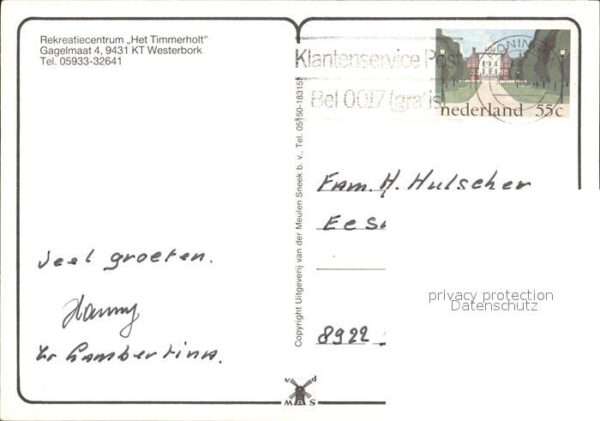 Rekreatiecentrum „Het Timmerholt"
Gagelmaat 4, 9431 KT Westerbork
Tel. 05933-32641
Klantenservice Post
Bel 0017 (gratis)
nederland 55c
Copyright Uitgeverij van der Meulen Sneek b.v., Tel. 05150-18315
Fam. H. Hulscher
8922
privacy protection
Datenschutz
Veel groeten.
Hanny
Lambertina.
v d
M A S